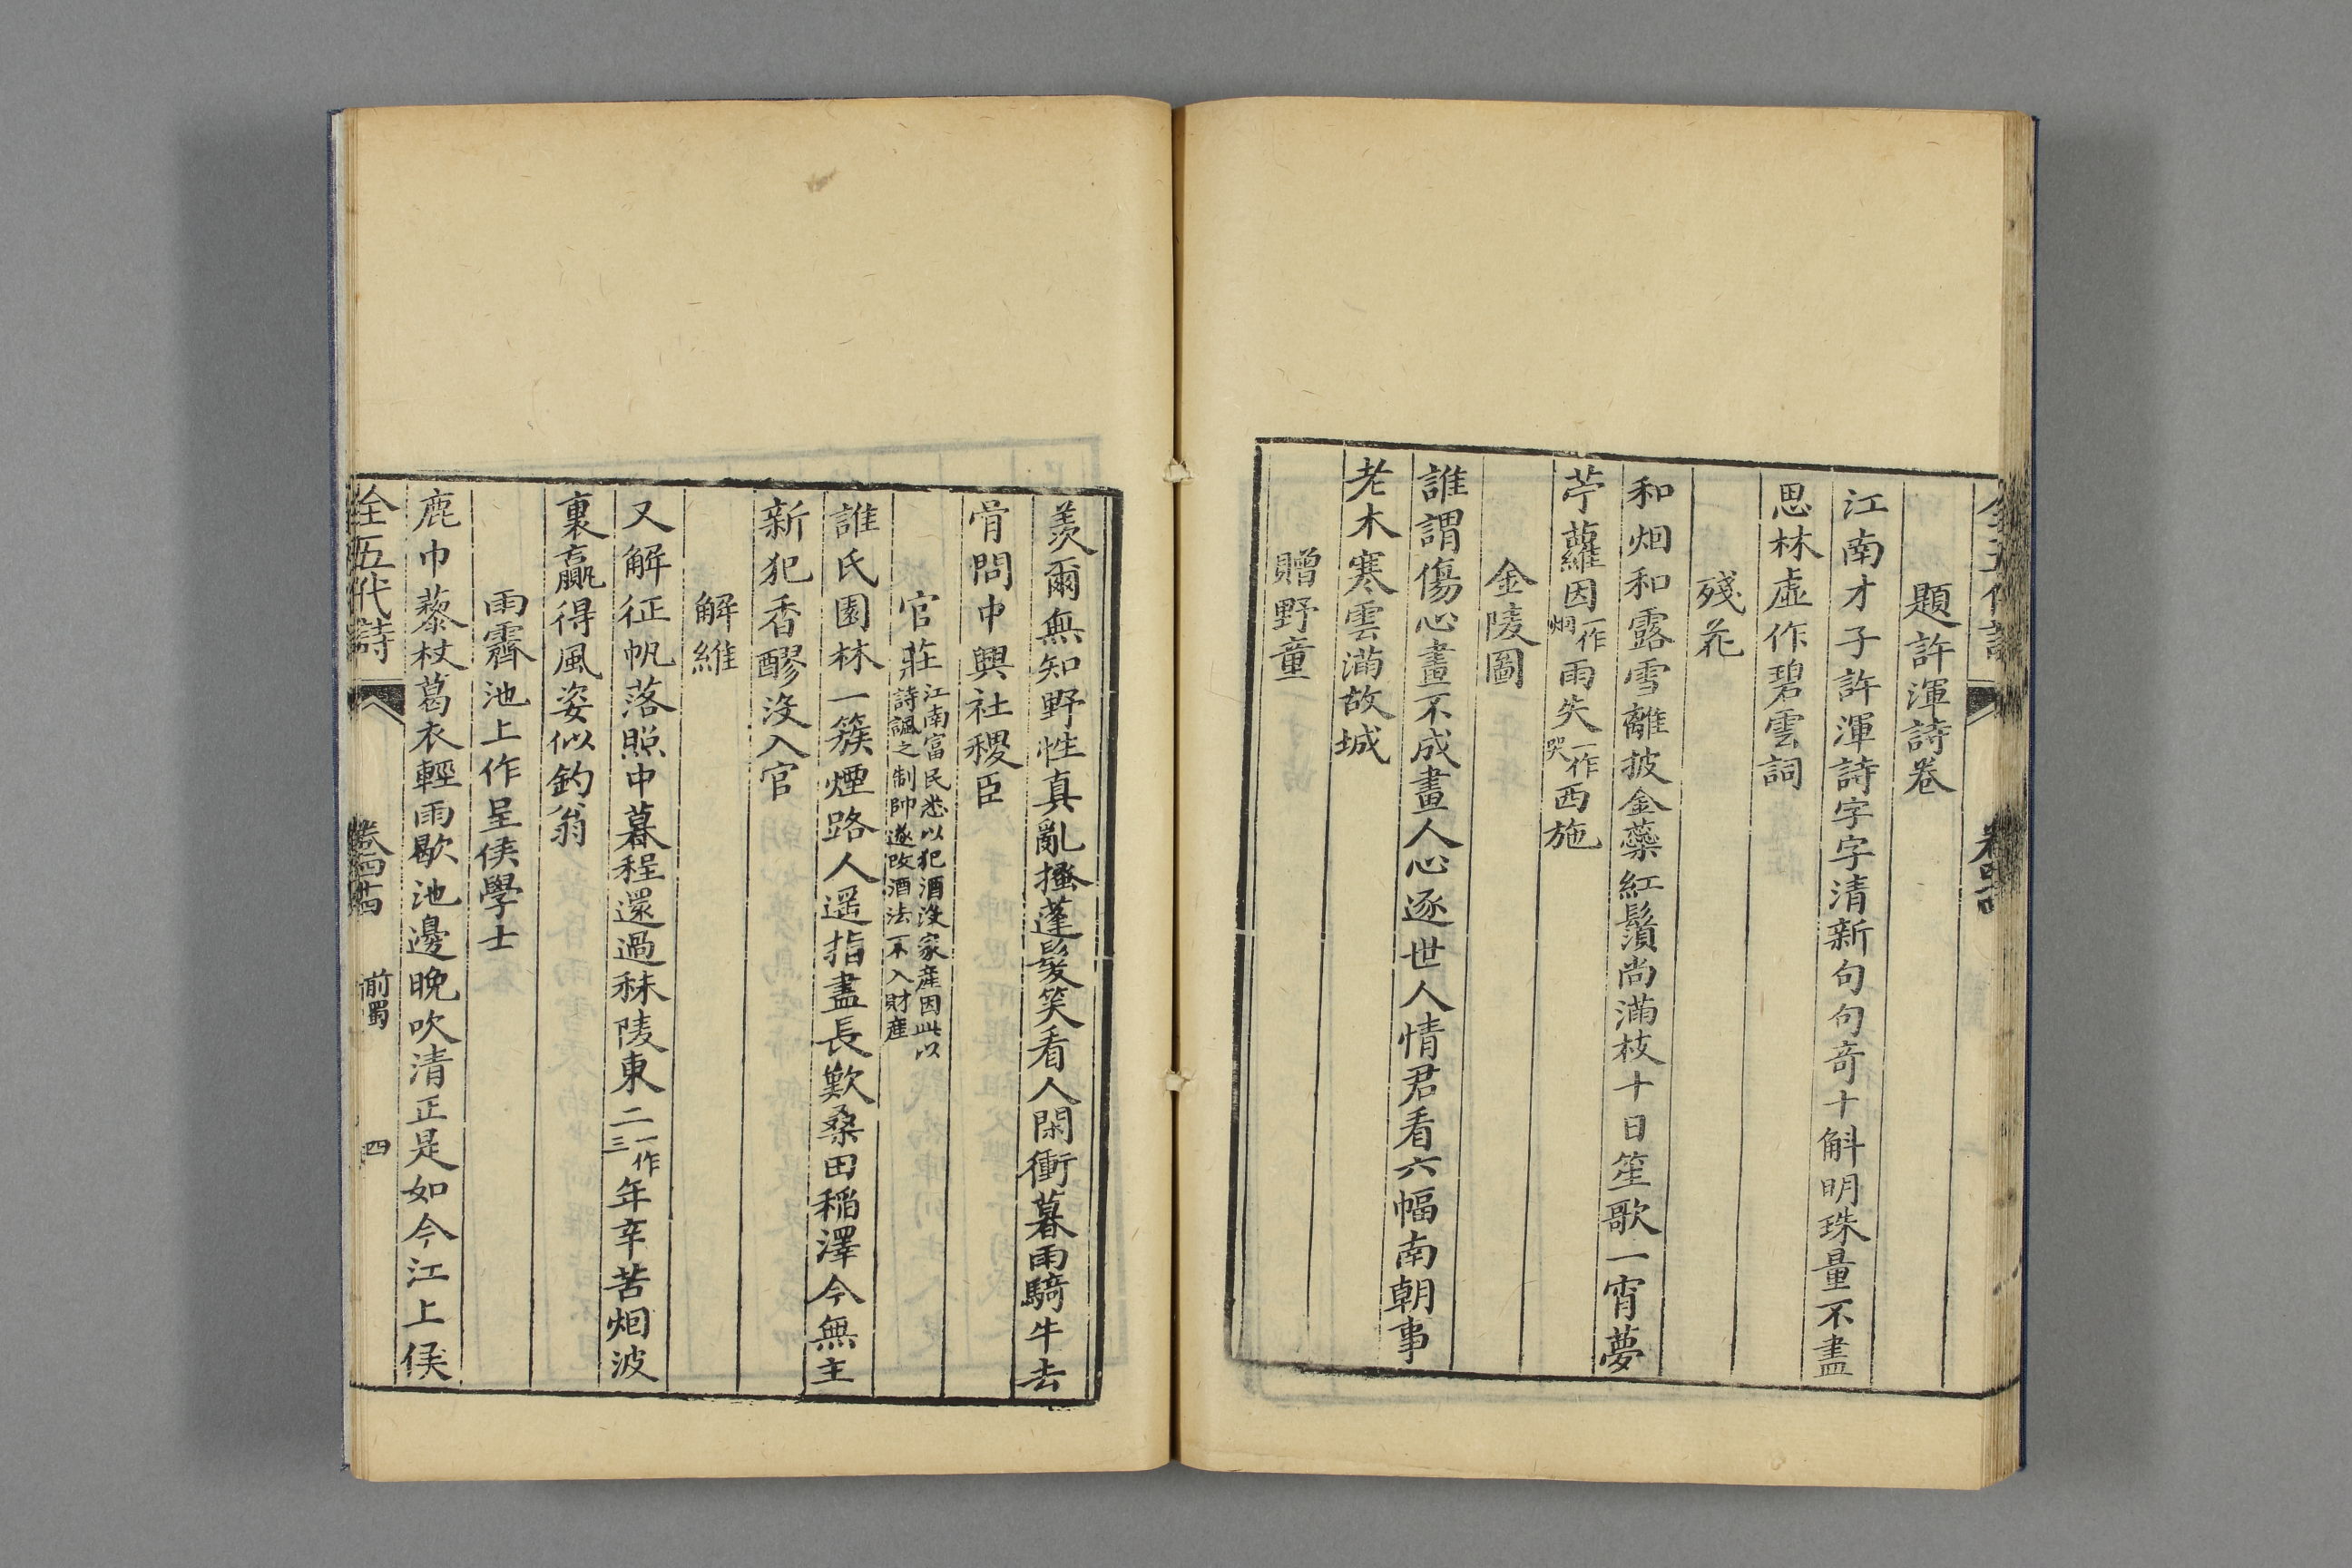 題許渾詩卷
江南才子許渾詩字字清新句句奇十斛明珠量不盡
思林虛作碧雲詞
殘花
和烟和露雪離披金蘂紅鬚尚滿枝十日笙歌一宵夢
苧蘿因一作烟雨失一作哭西施
金陵圖
誰謂傷心畫不成畫人心逐世人情君看六幅南朝事
老木寒雲滿故城
贈野童
羨爾無知野性真亂搔蓬髮笑看人閑衝暮雨騎牛去
肯問中興社稷臣
官莊江南富民悉以犯酒沒家産因此以詩諷之制帥遂改酒法不入財産
誰氏園林一簇煙路人遥指盡長歎桑田稻澤今無主
新犯香醪沒入官
解維
又解征帆落照中暮程還過秣陵東二一作三年辛苦烟波
裏贏得風姿似釣翁
雨霽池上作呈侯學士
鹿巾藜杖葛衣輕雨歇池邊晚吹清正是如今江上侯
全五代詩 卷四十四 前蜀 四